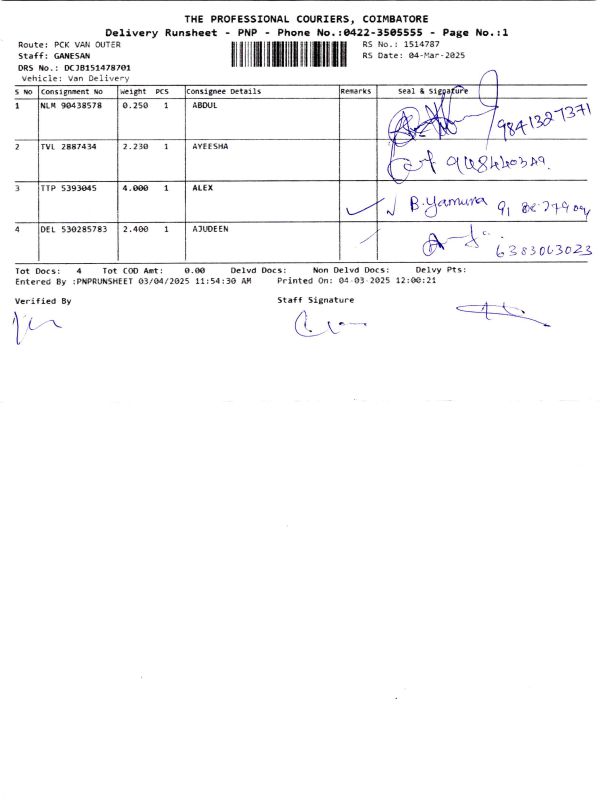 THE PROFESSIONAL COURIERS, COIMBATORE
Delivery Runsheet - PNP - Phone No.:0422-3505555 - Page No.:1
Route: PCK VAN OUTER
RS No.: 1514787
Staff: GANESAN
RS Date: 04-Mar-2025
DRS No.: DCJB151478701
Vehicle: Van Delivery
S No Consignment No Weight PCS Consignee Details Remarks Seal & Signature
1 NLM 90438578 0.250 1 ABDUL
9841327371
2 TVL 2887434 2.230 1 AYEESHA
3 TTP 5393045 4.000 1 ALEX B.Yamuna
4 DEL 530285783 2.400 1 AJUDEEN
6383063023
Tot Docs: 4 Tot COD Amt: 0.00 Delvd Docs: Non Delvd Docs: Delvy Pts:
Entered By :PNPRUNSHEET 03/04/2025 11:54:30 AM Printed On: 04-03-2025 12:00:21
Verified By Staff Signature